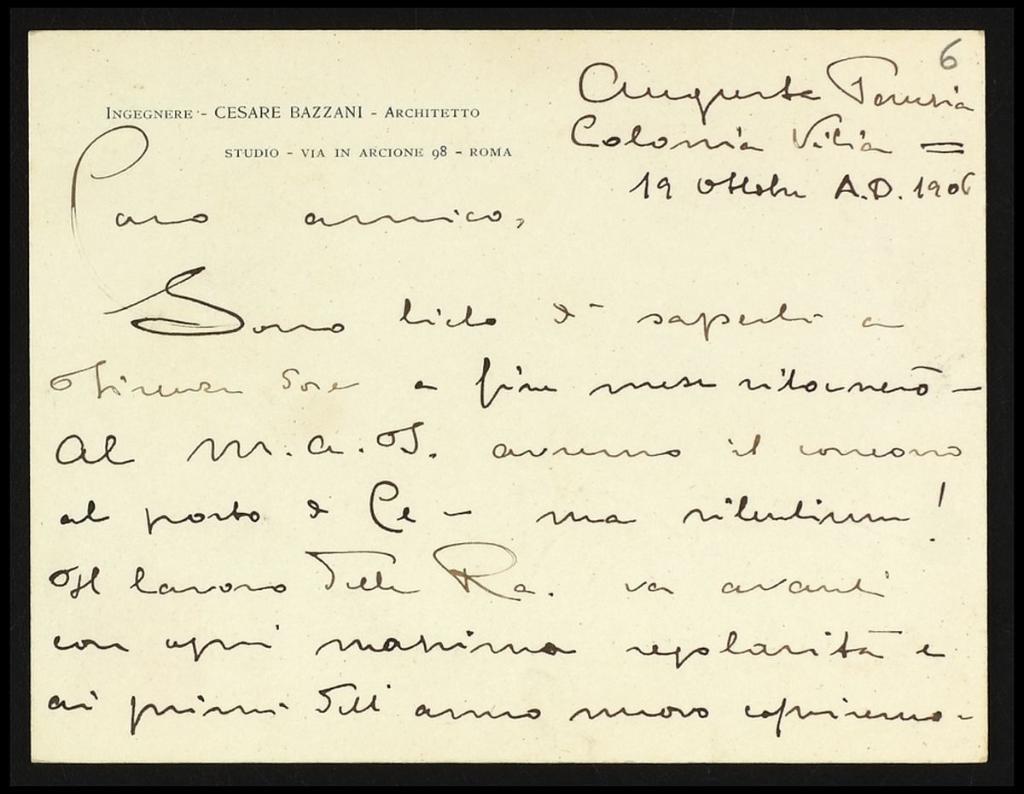 6
INGEGNERE - CESARE BAZZANI - ARCHITETTO
STUDIO - VIA IN ARCIONE 98 - ROMA
Augusta Perusia
Colonia Vibia =
19 Ottobre A.D. 1906
Caro amico,
Sono lieto di saperti a
Firenze dove a fine mese ritornerò -
Al M.A.F. avremo il concorso
al posto di Ce - ma silentium!
Il lavoro della Ra. va avanti
con ogni massima regolarità e
ai primi dell'anno nuovo copriremo -